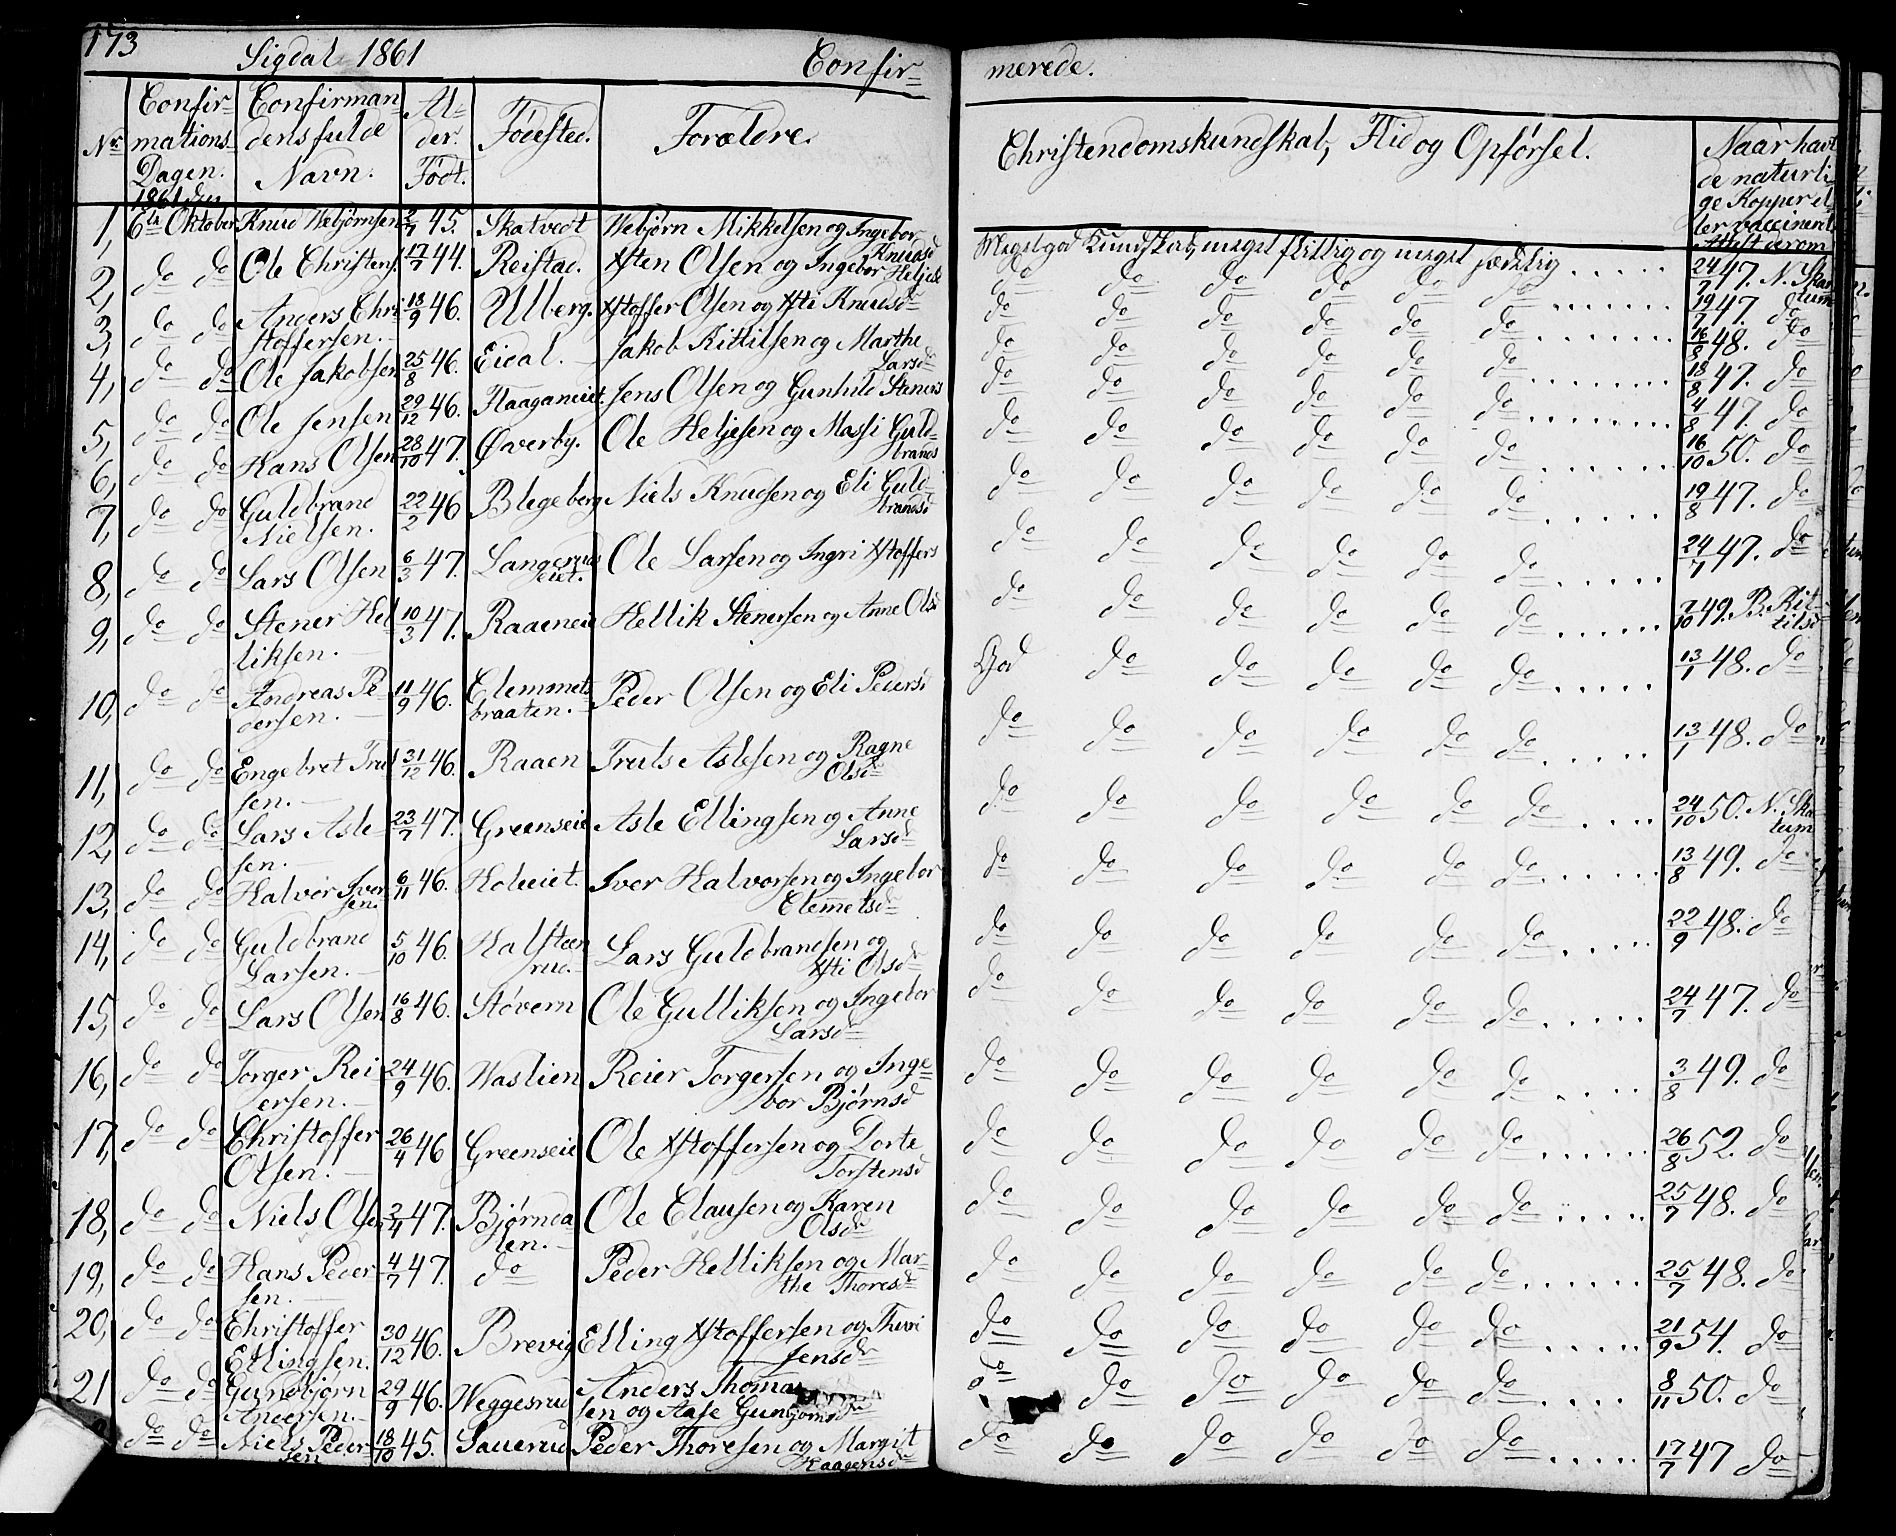 173 Sigdal 1861 Confir= merede.
Nr. Confir=mations Dagen. 1861 den Confirman dens fulde Navn. Al=der. Født. Fødested. Forældre. Christendomskundskab, Flid og Opførsel. Naar havt de naturli=ge Kopper el=ler vaccineret Attest derom
1, 6te Oktober Knud Webjørnsen 2/7 45. Skatvedt Webjørn Mikkelsen og Ingebor Knudsd Meget god Kundskab, meget flittig og meget sædelig ..... 24/7 47. N. Skartum
2, do do Ole Christens. 17/7 44. Reistad. Xsten Olsen og Ingebor Heljesd do do do do do do ...... 19/7 47. do
3, do do Anders Chri stoffersen. 13/9 46. Ulberg. Xstoffer Olsen og Xsti Knudsd do do do do do do ...... 16/8 48. do
4, do do Ole Jakobsen 25/8 46. Eidal. Jakob Kittilsen og Marthe Larsd do do do do do do ...... 18/8 47. do
5, do do Ole Jensen 29/12 46. Haaganeiet. Jens Olsen og Gunhild Steners do do do do do do ...... 4/8 47. do
6, do do Hans Olsen 28/10 47. Øverby. Ole Heljesen og Massi Guld=brands do do do do do do ...... 16/10 50. do
7, do do Guldbrand Nielsen. 22/2 46 Blegeberg Niels Knudsen og Eli Guld=brandsd do do do do do do ..... 19/8 47. do
8, do do Lars Olsen 6/3 47. Langerud eiet. Ole Larsen og Ingri Xstoffers do do do do do do ...... 24/7 47. do
9, do do Stener Hel liksen. 10/3 47. Raaeneie Hellik Stenersen og Anne Olsd do do do do do do ...... 7/10 49. B. Kit=tilsd
10, do do Andreas Pe dersen. 11/9 46. Clemmets braaten. Peder Olsen og Eli Pedersd God do do do do do ..... 13/1 48. do
11, do do Engebret Truls sen. 31/12 46. Raaen Truls Aslesen og Ragne Olsd do do do do do do ..... 13/1 48. do
12, do do Lars Asle sen. 23/7 47. Greenseie Asle Ellingsen og Anne Larsd do do do do do do .... 24/10 50. N. Ska tum
13, do do Halvor Iver sen. 6/11 46. Holeeiet. Iver Halvorsen og Ingebor Clemetsd do do do do do do ...... 13/8 49. do
14, do do Guldbrand Larsen. 5/10 46. Halsteen rud. Lars Guldbrandsen og Xsti Olsd do do do do do do ..... 22/9 48. do
15, do do Lars Olsen 16/8 46. Støvern Ole Gulliksen og Ingebor Larsd do do do do do do ..... 24/7 47. do
16, do do Torger Rei ersen. 24/9 46. Haslien Reier Torgersen og Inge=bor Bjørnsd do do do do do do .... 3/8 49. do
17, do do Christoffer Olsen. 26/4 46 Greenseie Ole Xstoffersen og Dorte Torstensd do do do do do do ...... 26/8 52. do
18, do do Niels Olsen 2/4 47. Bjørnda len. Ole Clausen og Karen Olsd do do do do do do ..... 25/7 48. do
19, do do Hans Peder sen. 4/7 47. do Peder Helliksen og Mar=the Thoresd do do do do do do ...... 25/7 48. do
20, do do Christoffer Ellingsen. 30/12 46. Brevig Elling Xstoffersen og Thuri Jensd do do do do do do ..... 21/9 54. do
21 do do Gundbjørn Andersen. 29/9 46. Weggesrud Anders Thomas sen og Aase do do do do do do .... 8/11 50. do
do do Niels Peder sen 18/10 45. Sauerud Peder Thoresen og Margit Haagensd do do do do do do ..... 17/7 47 do